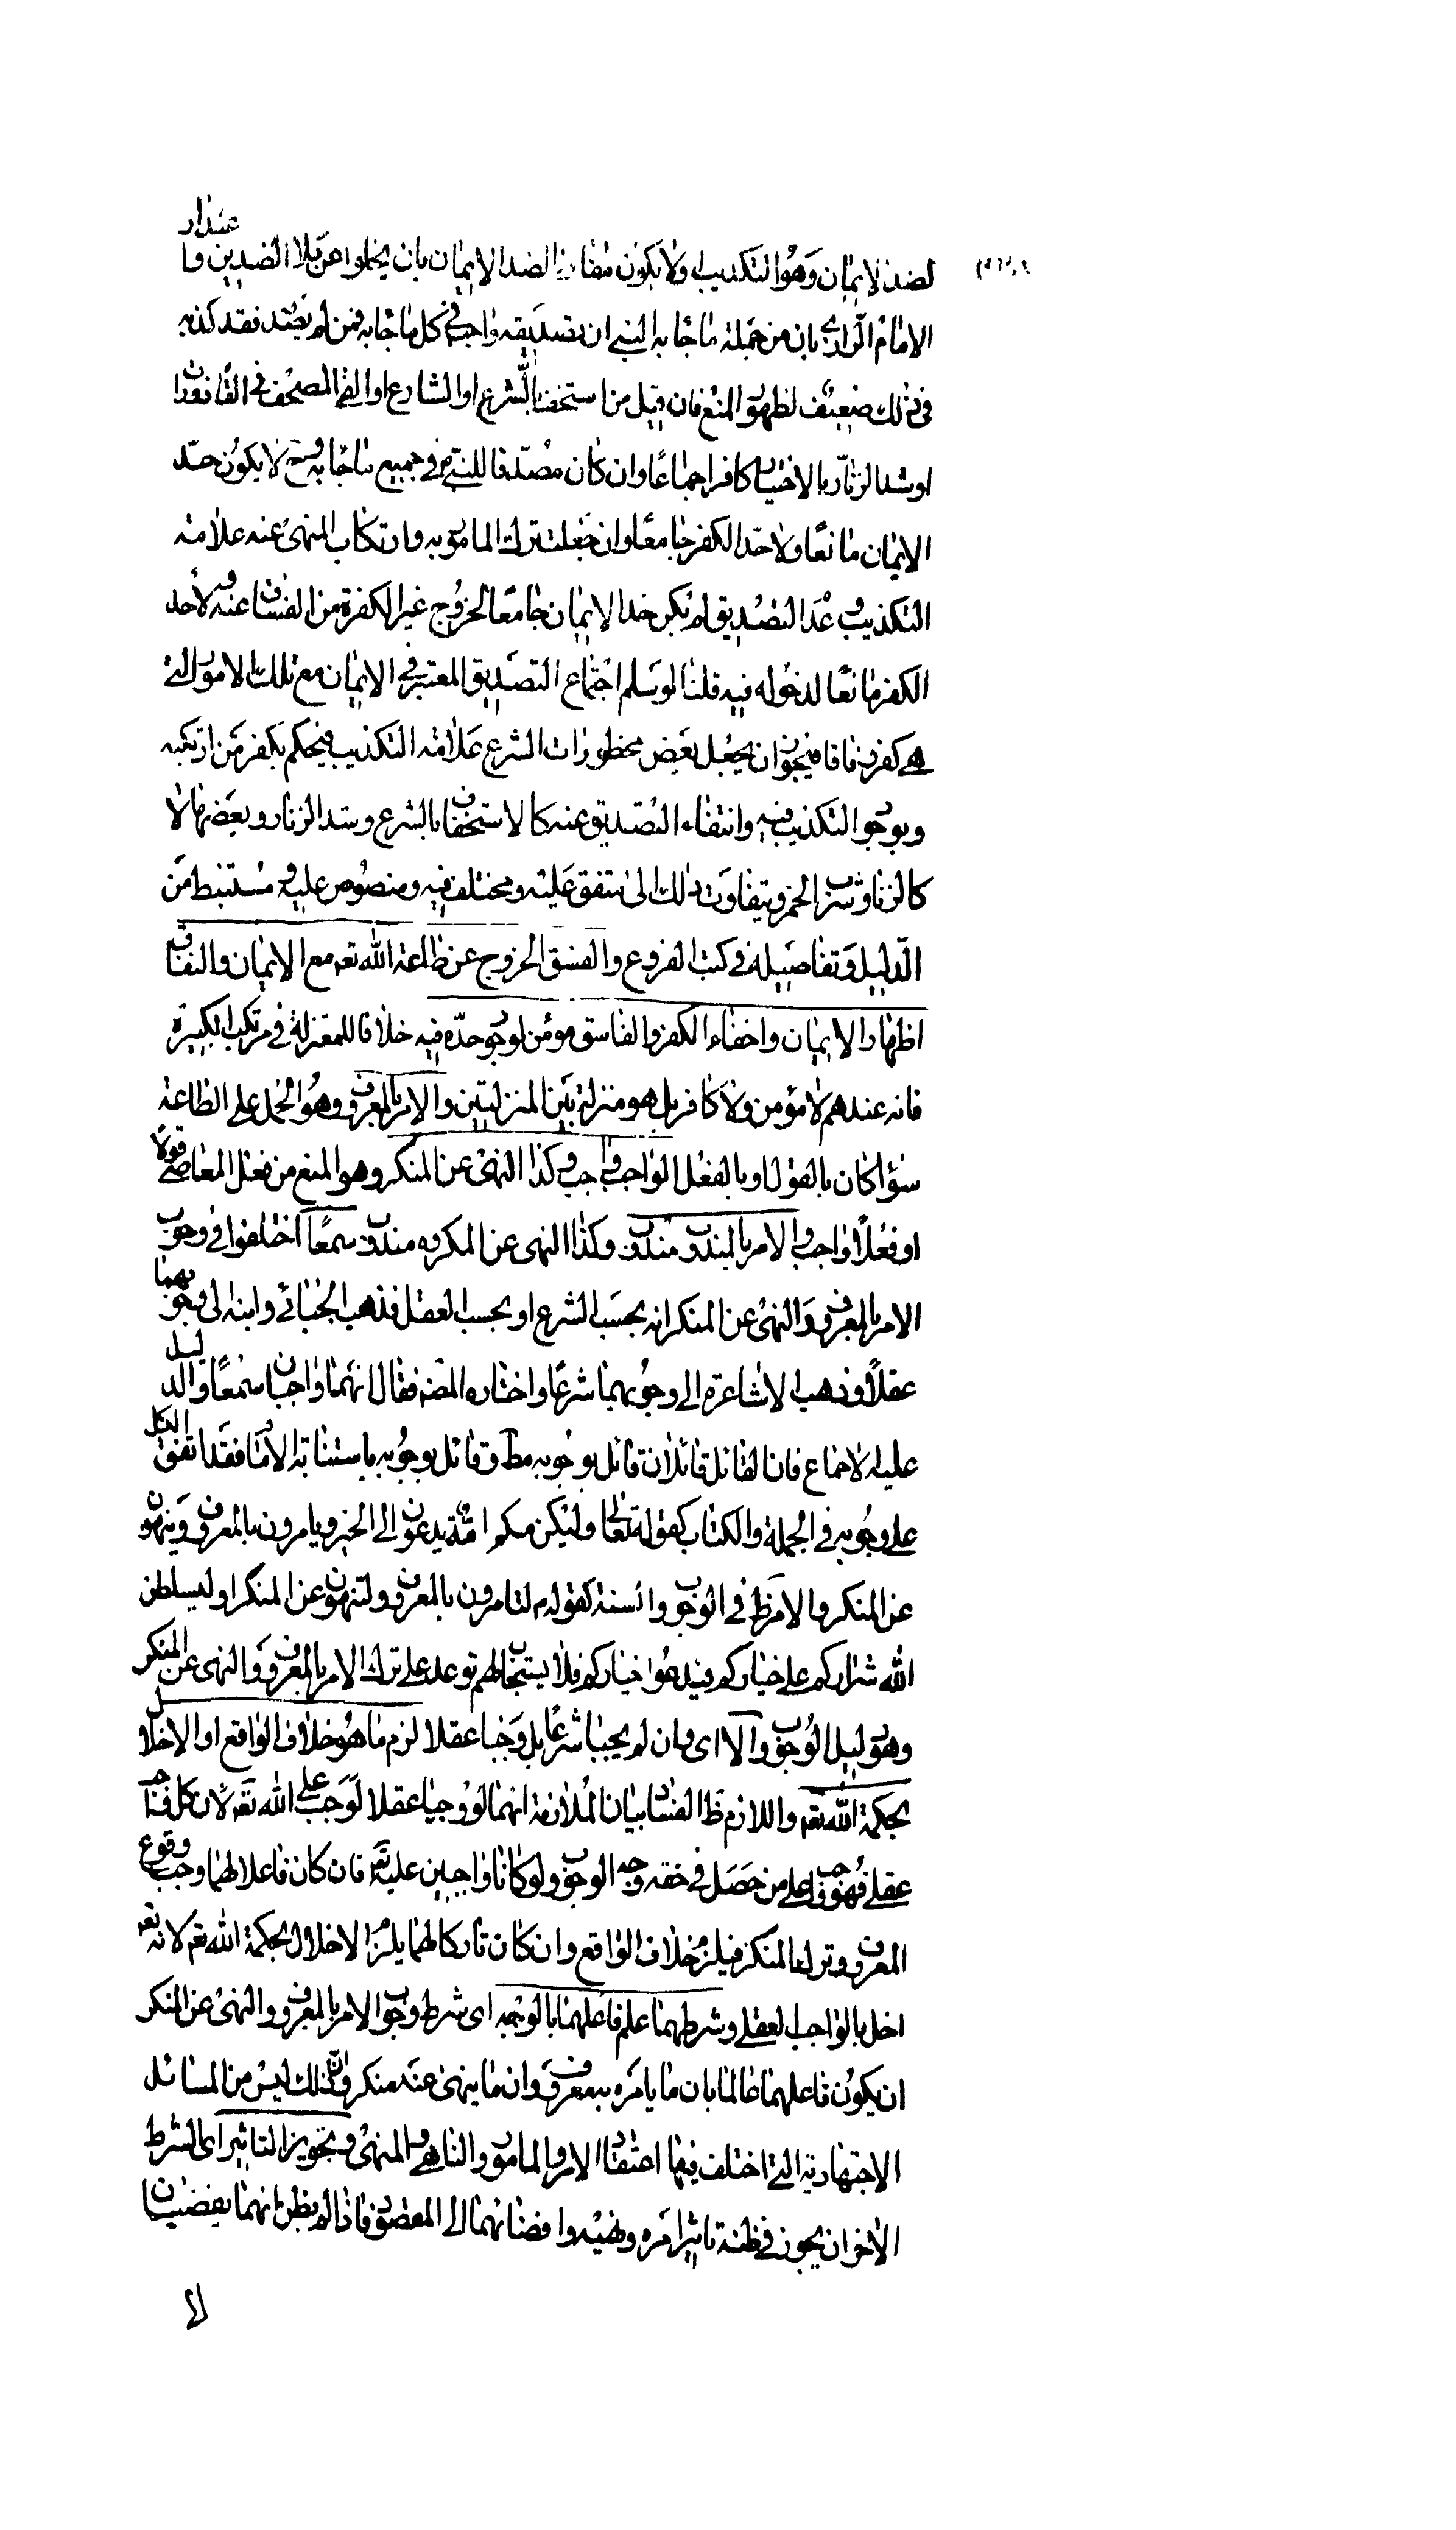 لضد الايمان وهو التكذيب ولا يكون مقارنا لضد الايمان بان يخلوا عن كلا الضدين واعتذار
الامام الرازي بان من جملة ما جاء به النبي ان تصديقه واجب في كل ما جاء به فمن لم يصدقه فقد كذبه
في ذلك ضعيف لظهور المنع فان قيل من استخف بالشرع او الشارع او القى المصحف في القاذورات
او شد الزنار بالاختيار كافر اجماعا وان كان مصدقا للنبي في جميع ما جاء به وح لا يكون حد
الايمان مانعا ولا حد الكفر جامعا وان جعلت ترك المامور به وارتكاب المنهي عنه علامة
التكذيب وعدم التصديق لم يكن حد الايمان جامعا لخروج غير الكفرة من الفساق عنه ولا حد
الكفر مانعا لدخوله فيه قلنا لو سلم اجتماع التصديق المعتبر في الايمان مع تلك الامور التي
هي كفر وفاقا فيجوز ان يجعل بعض محظورات الشرع علامة التكذيب فيحكم بكفر من ارتكبه
وبوجود التكذيب فيه وانتفاء التصديق عنه كالاستخفاف بالشرع وشد الزنار وبعضها لا
كالزنا وشرب الخمر ويتفاوت ذلك الى متفق عليه ومختلف فيه ومنصوص عليه ومستنبط من
الدليل وتفاصيله في كتب الفروع والفسق الخروج عن طاعة الله تعه مع الايمان والنفاق
اظهار الايمان واخفاء الكفر والفاسق مومن لوجود حده فيه خلافا للمعتزلة في مرتكب الكبيرة
فانه عندهم لا مؤمن ولا كافر بل هو منزلة بين المنزلتين والامر بالمعروف وهو الحمل على الطاعة
سواء كان بالقول او بالفعل الواجب واجب وكذا النهي عن المنكر وهو المنع من فعل المعاصي قولا
او فعلا واجب والامر بالمندوب مندوب وكذا النهي عن المكروه مندوب سمعا اختلفوا في وجوب
الامر بالمعروف والنهي عن المنكر انه بحسب الشرع او بحسب العقل فذهب الجبائي وابنه الى وجوبهما
عقلا وذهب الاشاعرة الى وجوبهما شرعا واختاره المصنف فقال انهما واجبان سمعا والدليل
عليه الاجماع فان القائل قائلان قائل بوجوبه مط وقائل بوجوبه باستنابة الامام فقد اتفق الكل
على وجوبه في الجملة والكتاب كقوله تعالى ولتكن منكم امة يدعون الى الخير ويامرون بالمعروف وينهون
عن المنكر والامر ظ في الوجوب والسنة كقوله م لتامرون بالمعروف ولتنهون عن المنكر او ليسلطن
الله شراركم على خياركم فيدعوا خياركم فلا يستجاب لهم توعد على ترك الامر بالمعروف والنهي عن المنكر
وهو دليل الوجوب والا اي وان لم يجبا شرعا بل وجبا عقلا لزم ما هو خلاف الواقع او الاخلال
بحكمة الله تعه واللازم ظ الفساد بيان الملازمة انهما لو وجبا عقلا لوجب على الله تعه لان كل واجب
عقلي فهو واجب على من حصل في حقه وجه الوجوب ولو كانا واجبين عليه تعه فان كان فاعلا لهما وجب وقوع
المعروف وترك المنكر فيلزم خلاف الواقع وان كان تاركا لهما يلزم الاخلال بحكمة الله تعه لانه تعه
اخل بالواجب العقلي وشرطهما علم فاعلهما بالوجه اي شرط وجوب الامر بالمعروف والنهي عن المنكر
ان يكون فاعلهما عالما بان ما يامره به معروف وان ما ينهى عنه منكر وان ذلك ليس من المسائل
الاجتهادية التي اختلف فيها اعتقاد الامر والمامور والناهي والمنهي وتجويز التاثير اي الشرط
الاخر ان يجوز في ظنه تاثير امره ونهيه وافضائهما الى المقصود فاذا لم يظن انهما يفضيان
لا